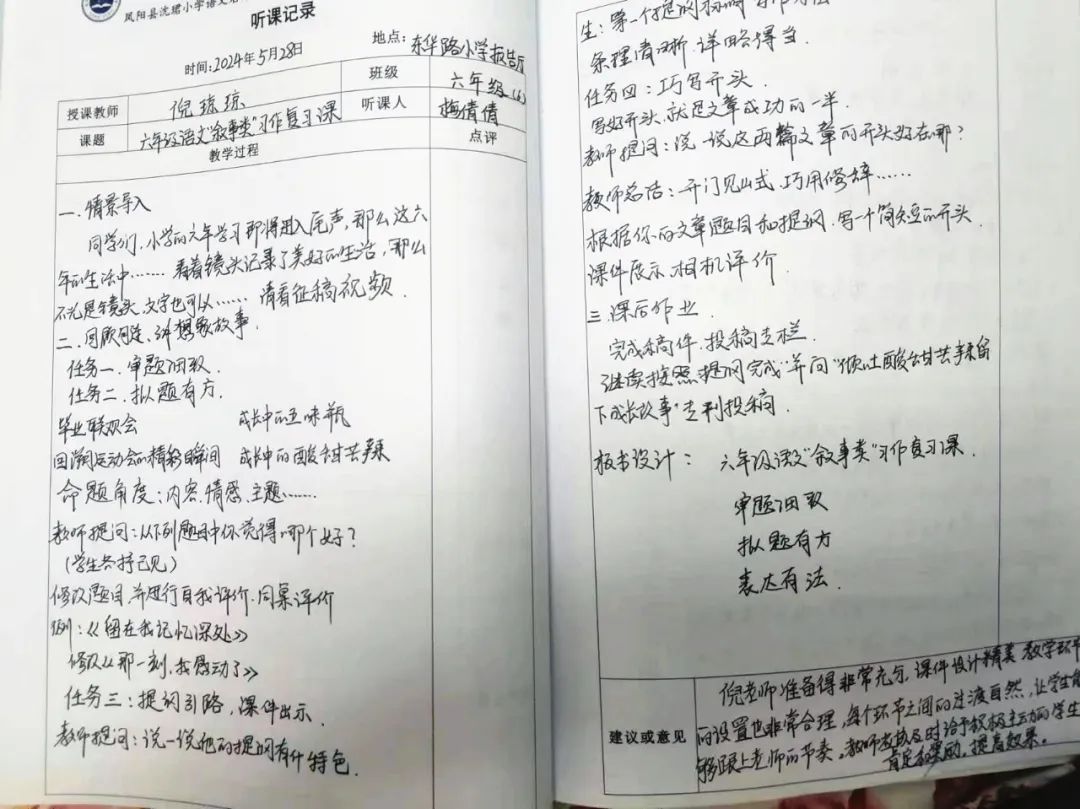 凤阳县洗珺小学语文
听课记录
时间:2024年5月28日
地点:东华路小学报告厅
授课教师 倪琼琼 班级 六年级(6)
课题 六年级语文“叙事类”习作复习课 听课人 梅倩倩
教学过程 点评
一.情景导入
同学们,小学的六年学习即将进入尾声,那么这六
年的生活中…… 看着镜头记录了美好的生活,那么
不光是镜头,文字也可以…… 请看征稿视频.
二.回顾 讲 故事.
任务一.审题细致.
任务二.拟题有方.
毕业联欢会 成长中的五味瓶
回溯运动会的精彩瞬间 成长中的酸甜苦辣
命题角度:内容.情感.主题……
教师提问:从下列题目中你觉得哪个好?
(学生各持己见)
修改题目,并进行自我评价.同桌评价
例:《留在我记忆深处》
修改《那一刻,我感动了》
任务三:提纲引路,课件出示.
教师提问:说一说他的提纲有什特色.
生:第一个提纲
条理清晰 详略得当.
任务四:巧写开头.
写好开头,就是文章成功的一半.
教师提问:说一说这两篇文章的开头好在哪?
教师总结:开门见山式,巧用修辞……
根据你的文章题目和提纲,写一个简短的开头.
课件展示,相机评价.
三.课后作业.
完成稿件,投稿专栏.
继续按照提纲完成,并向“倾吐酸甜苦辣留
下成长故事”专刊投稿.
板书设计: 六年级语文“叙事类”习作复习课.
审题细致
拟题有方
表达有法.
建议或意见
倪老师准备得非常充分,课件设计精美,教学环节
的设置也非常合理,每个环节之间的过渡自然,让学生能
够跟上老师的节奏。教师 及时给予积极主动的学生
肯定和奖励,提高效果。